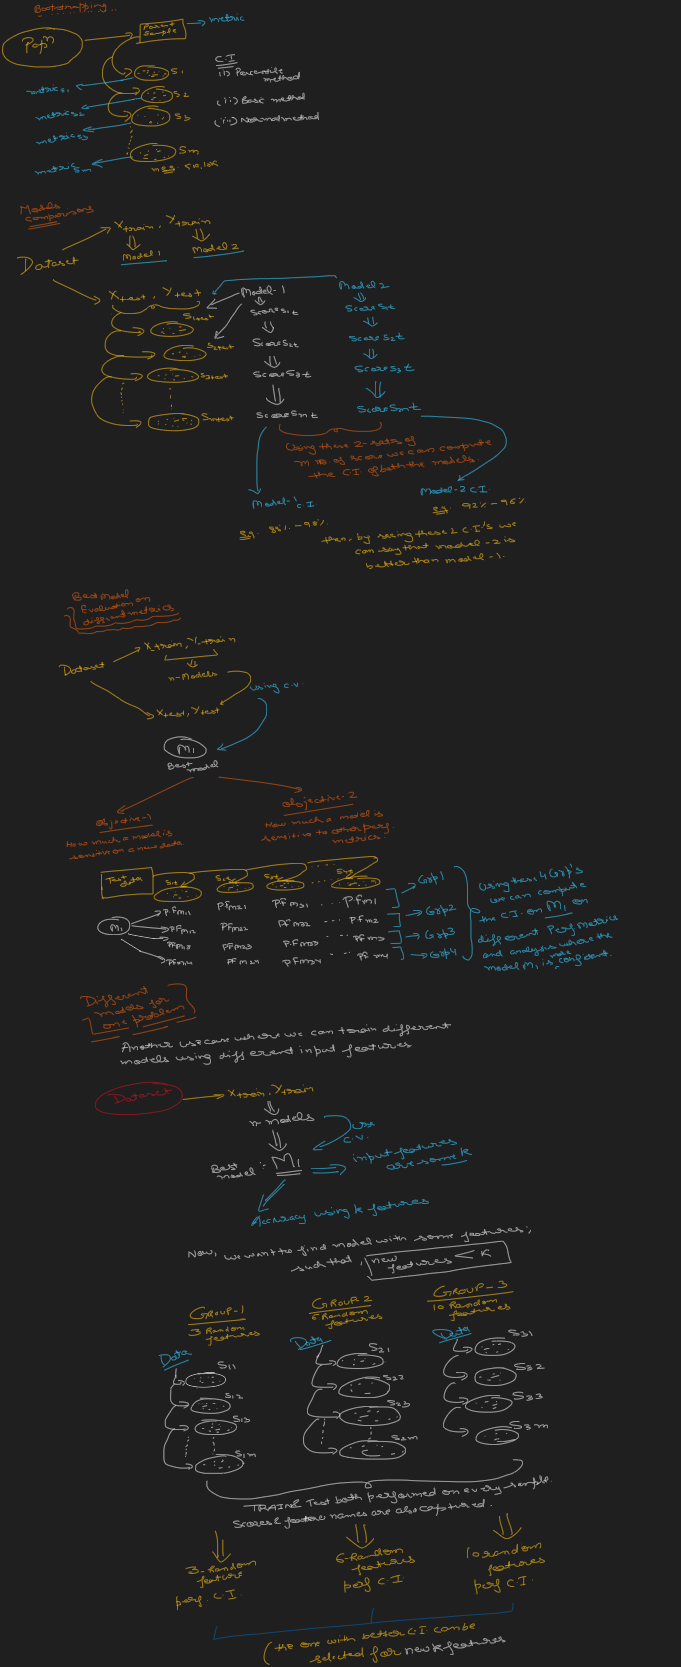 Bootstrapping..
Popn
Parent
Sample
metric
C.I
(i) Percentile
method
(ii) Basic method
(iii) Normal method
S1
S2
S3
Sm
metricS1
metricS2
metricS3
metricSm
m eg. 5k, 10k
Models
comparison
Dataset
Xtrain, Ytrain
Model 1
Model 2
Xtest, Ytest
S1test
S2test
S3test
Smtest
Model-1
ScoreS1t
ScoreS2t
ScoreS3t
ScoreSmt
Model 2
ScoreS1t
ScoreS2t
ScoreS3t
ScoreSmt
Using these 2-sets of
m no of score we can compute
the CI of both the models.
Model-1 C.I
Eg. 85% - 98%
Model-2 C.I.
Eg. 92% - 96%
then, by seeing these 2 C.I's we
can say that model-2 is
better than model-1.
Best model
Evaluation on
different metrics
Dataset
X_train, Y_train
n-Models
using c.v.
Xtest, Ytest
M1
Best
model
Objective-1
How much a model is
sensitive on a new data
Objective-2
How much a model is
sensitive to other perf.
metrics.
Test
data
M1
Pfm11 Pfm21 Pfm31 ... Pfm1
Pfm12 Pfm22 Pfm32 ... Pfm2
Pfm13 Pfm23 Pfm33 ... Pfm3
Pfm14 Pfm24 Pfm34 ... Pfm4
Grp1
Grp2
Grp3
Grp4
Using these 4 Grp's
we can compute
the C.I. on M1 on
different Perf Metrics
and analysis where the
model M1 is more confident.
Different
models for
one problem
Another usecase where we can train different
models using different input features
Dataset
Xtrain, Ytrain
n-models
use
C.V.
Best
model :- M1
input features
are some k
Accuracy using k features
Now, we want to find model with some features;
such that, new
features < K
GROUP-1
3 Random
features
GROUP-2
6 Random
features
GROUP-3
10 Random
features
Data
S11
S12
S13
S1m
Data
S21
S22
S23
S2m
Data
S31
S32
S33
S3m
TRAIN & Test both performed on every sample.
Scores & feature names are also captured.
3-Random
feature
perf. C.I
6-Random
features
perf C.I.
10 random
features
perf C.I.
(the one with better C.I. can be
selected for new k features